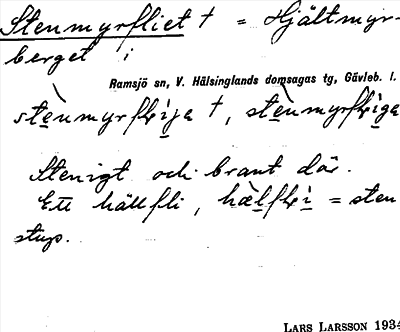 Stenmyrfliet † = Hjältmyr-
berget i
Ramsjö sn, V. Hälsinglands domsagas tg, Gävleb. l.
stènmyrflija †, stènmyrfliga
Stenigt och brant där.
Ett hällfli, hælfli = sten
stup.
LARS LARSSON 1934